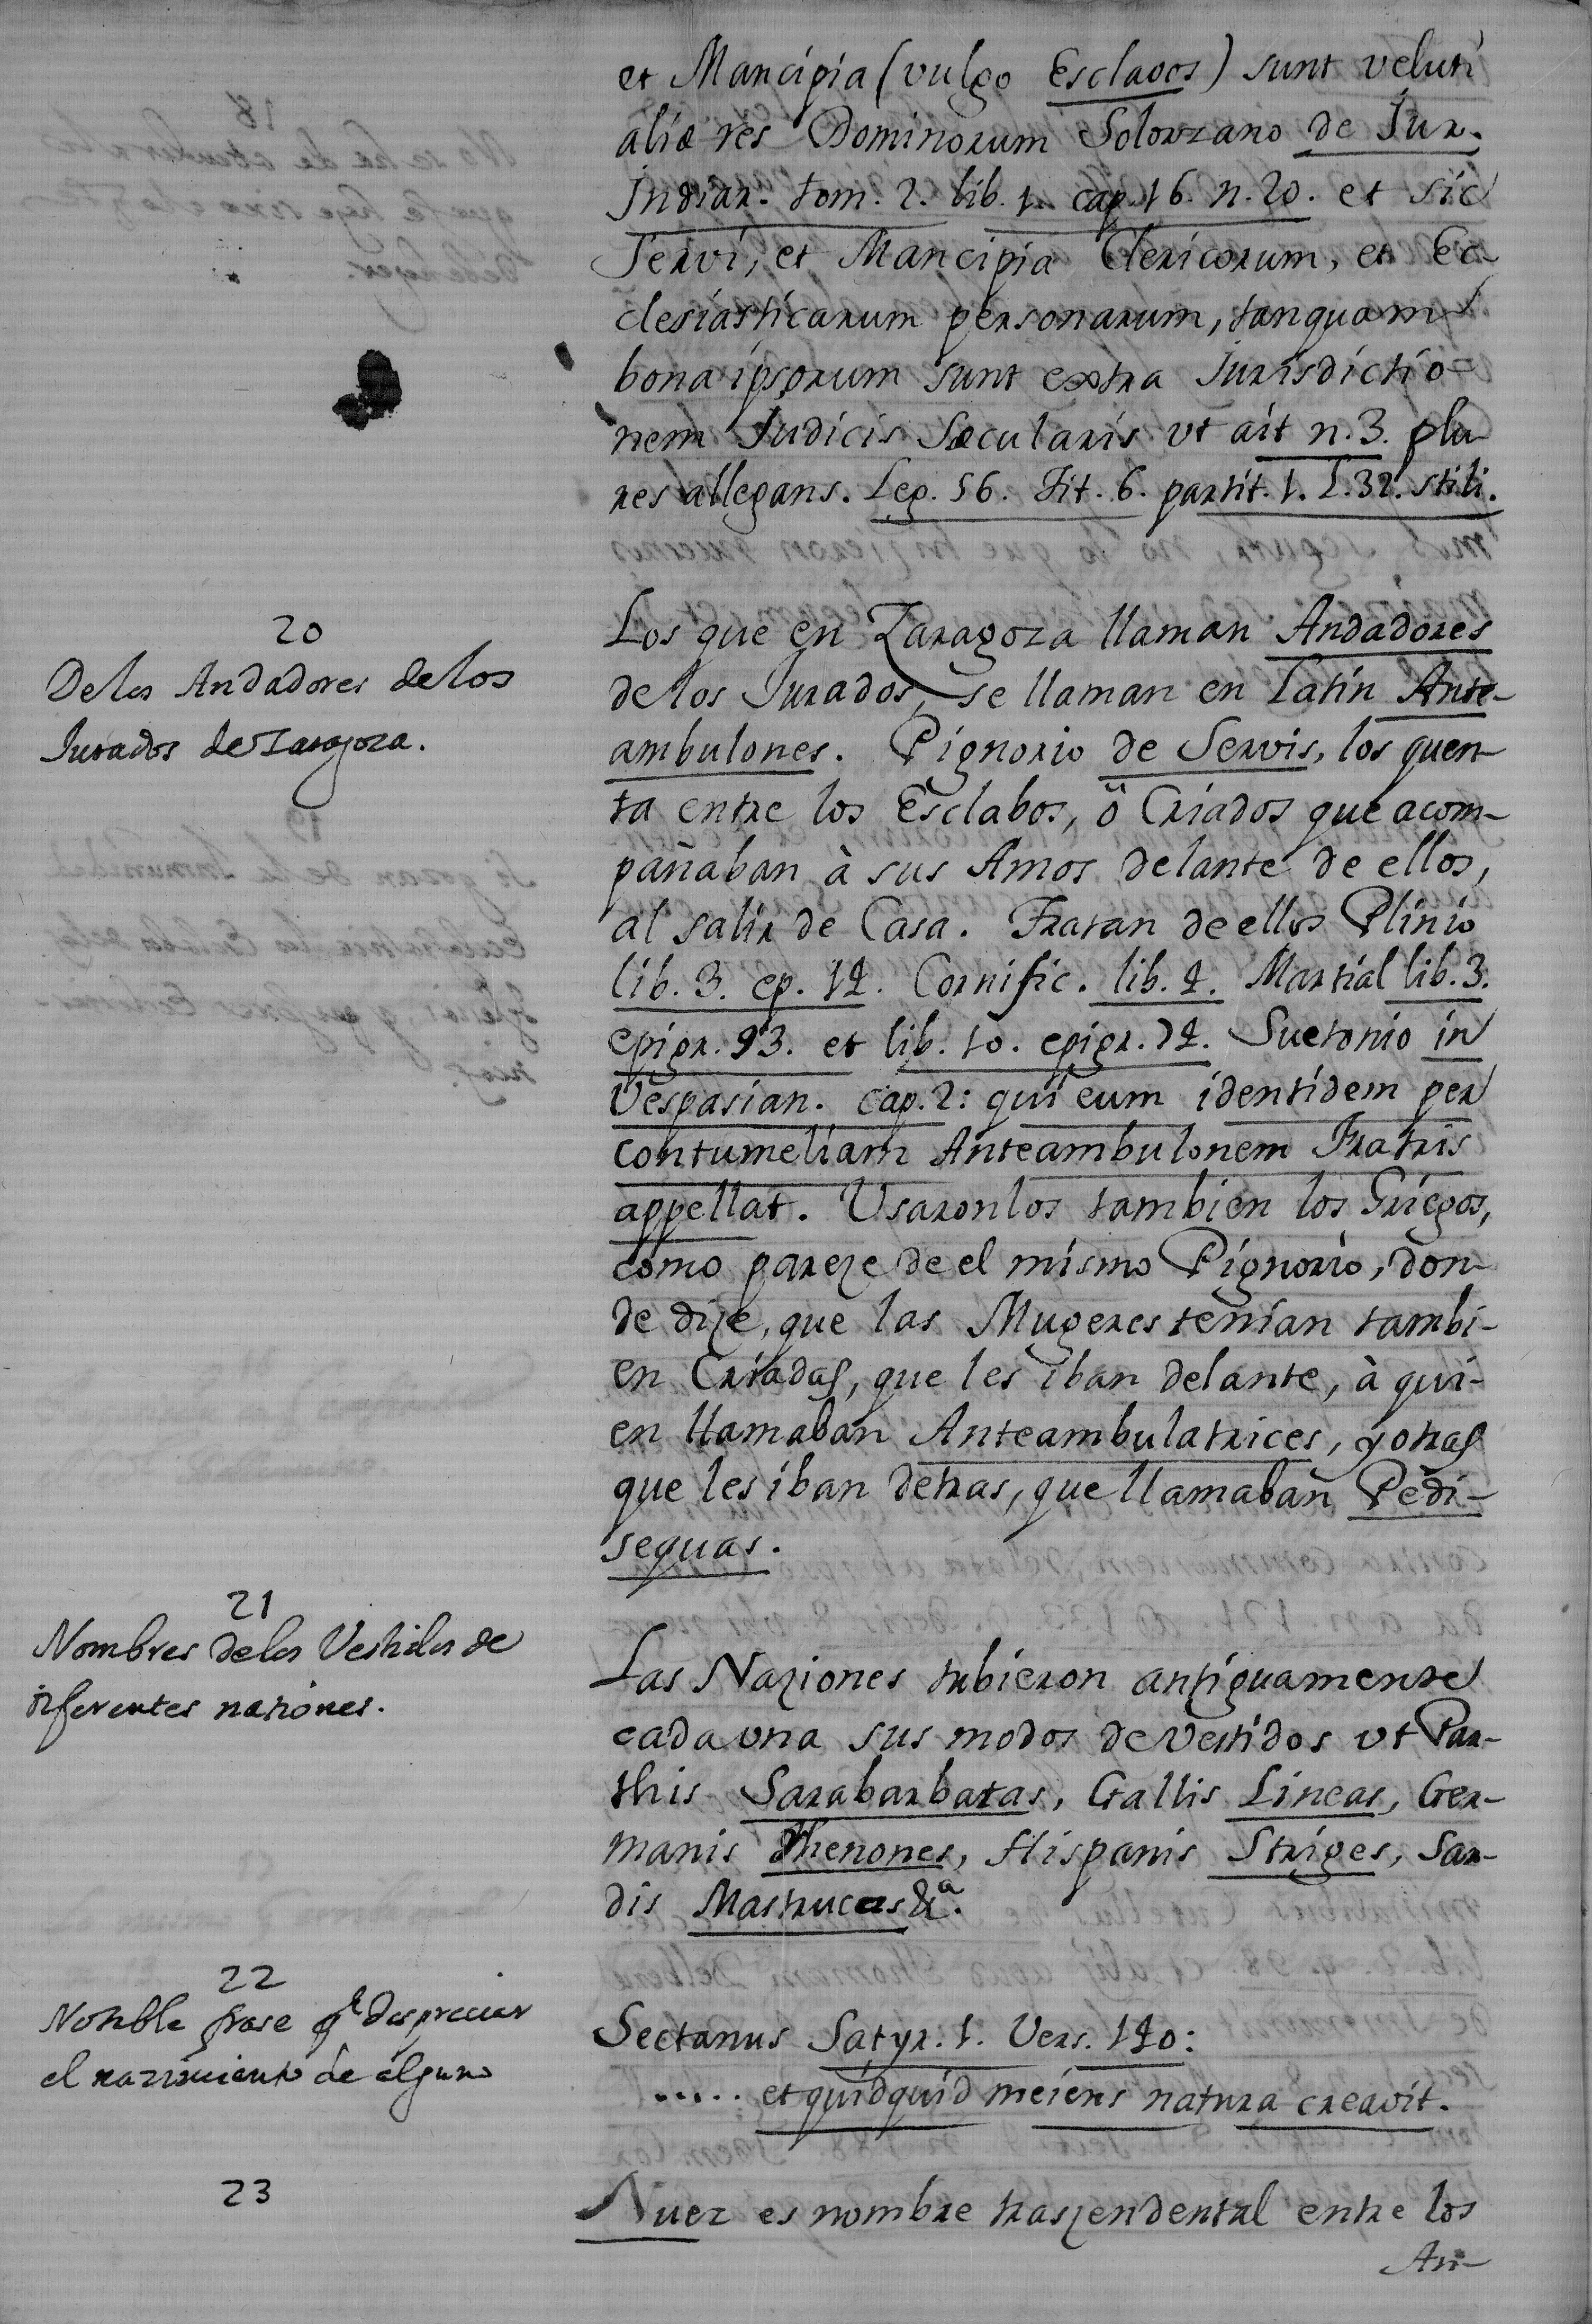 et Mancipia (vulgo Esclavos) sunt veluti
aliæ res Dominorum Solorzano de Jur.
Indiar. tom. 2. lib. 1. cap. 16. n. 20. et sic
Servi, et Mancipia Clericorum, et Ec-
clesiasticarum personarum, tanquam
bona ipsorum sunt extra Jurisdictio-
nem Judicis Sæcularis vt ait n. 3. plu-
res allegans. Leg. 56. Tit. 6. partit. 1. L. 32. stili.
20
De los Andadores de los
Jurados de Zaragoza.
Los que en Zaragoza llaman Andadores
de los Jurados, se llaman en Latin Ante-
ambulones. Pignorio de Servis, los quen-
ta entre los Esclabos, ö Criados que acom-
pañaban à sus Amos delante de ellos,
al salir de Casa. Tratan de ellos Plinio
lib. 3. ep. 14. Cornific. lib. 4. Martial lib. 3.
epigr. 93. et lib. 10. epigr. 74. Suetonio in
Vespasian. cap. 2: qui eum identidem per
contumeliam Anteambulonem Fratris
appellat. Usaronlos tambien los Griegos,
como pareze de el mismo Pignorio, don-
de dize, que las Mugeres tenian tambi-
en Criadas, que les iban delante, à qui-
en llamaban Anteambulatrices, y otras
que les iban detras, que llamaban Pedi-
sequas.
21
Nombres de los Vestidos de
diferentes nationes.
Las Naziones tubieron antiguamente
cada vna sus modos de vestidos vt Par-
this Sarabarbatas, Gallis Lineas, Ger-
manis Rhenones, Hispanis Striges, Sar-
dis Mastrucas &a.
22
Notable frase pa despreciar
el nazimiento de alguno
Sectanus Satyr. 1. Vers. 140:
..... et quidquid meiens natura creavit.
23
Nuez es nombre traszendental entre los
An-